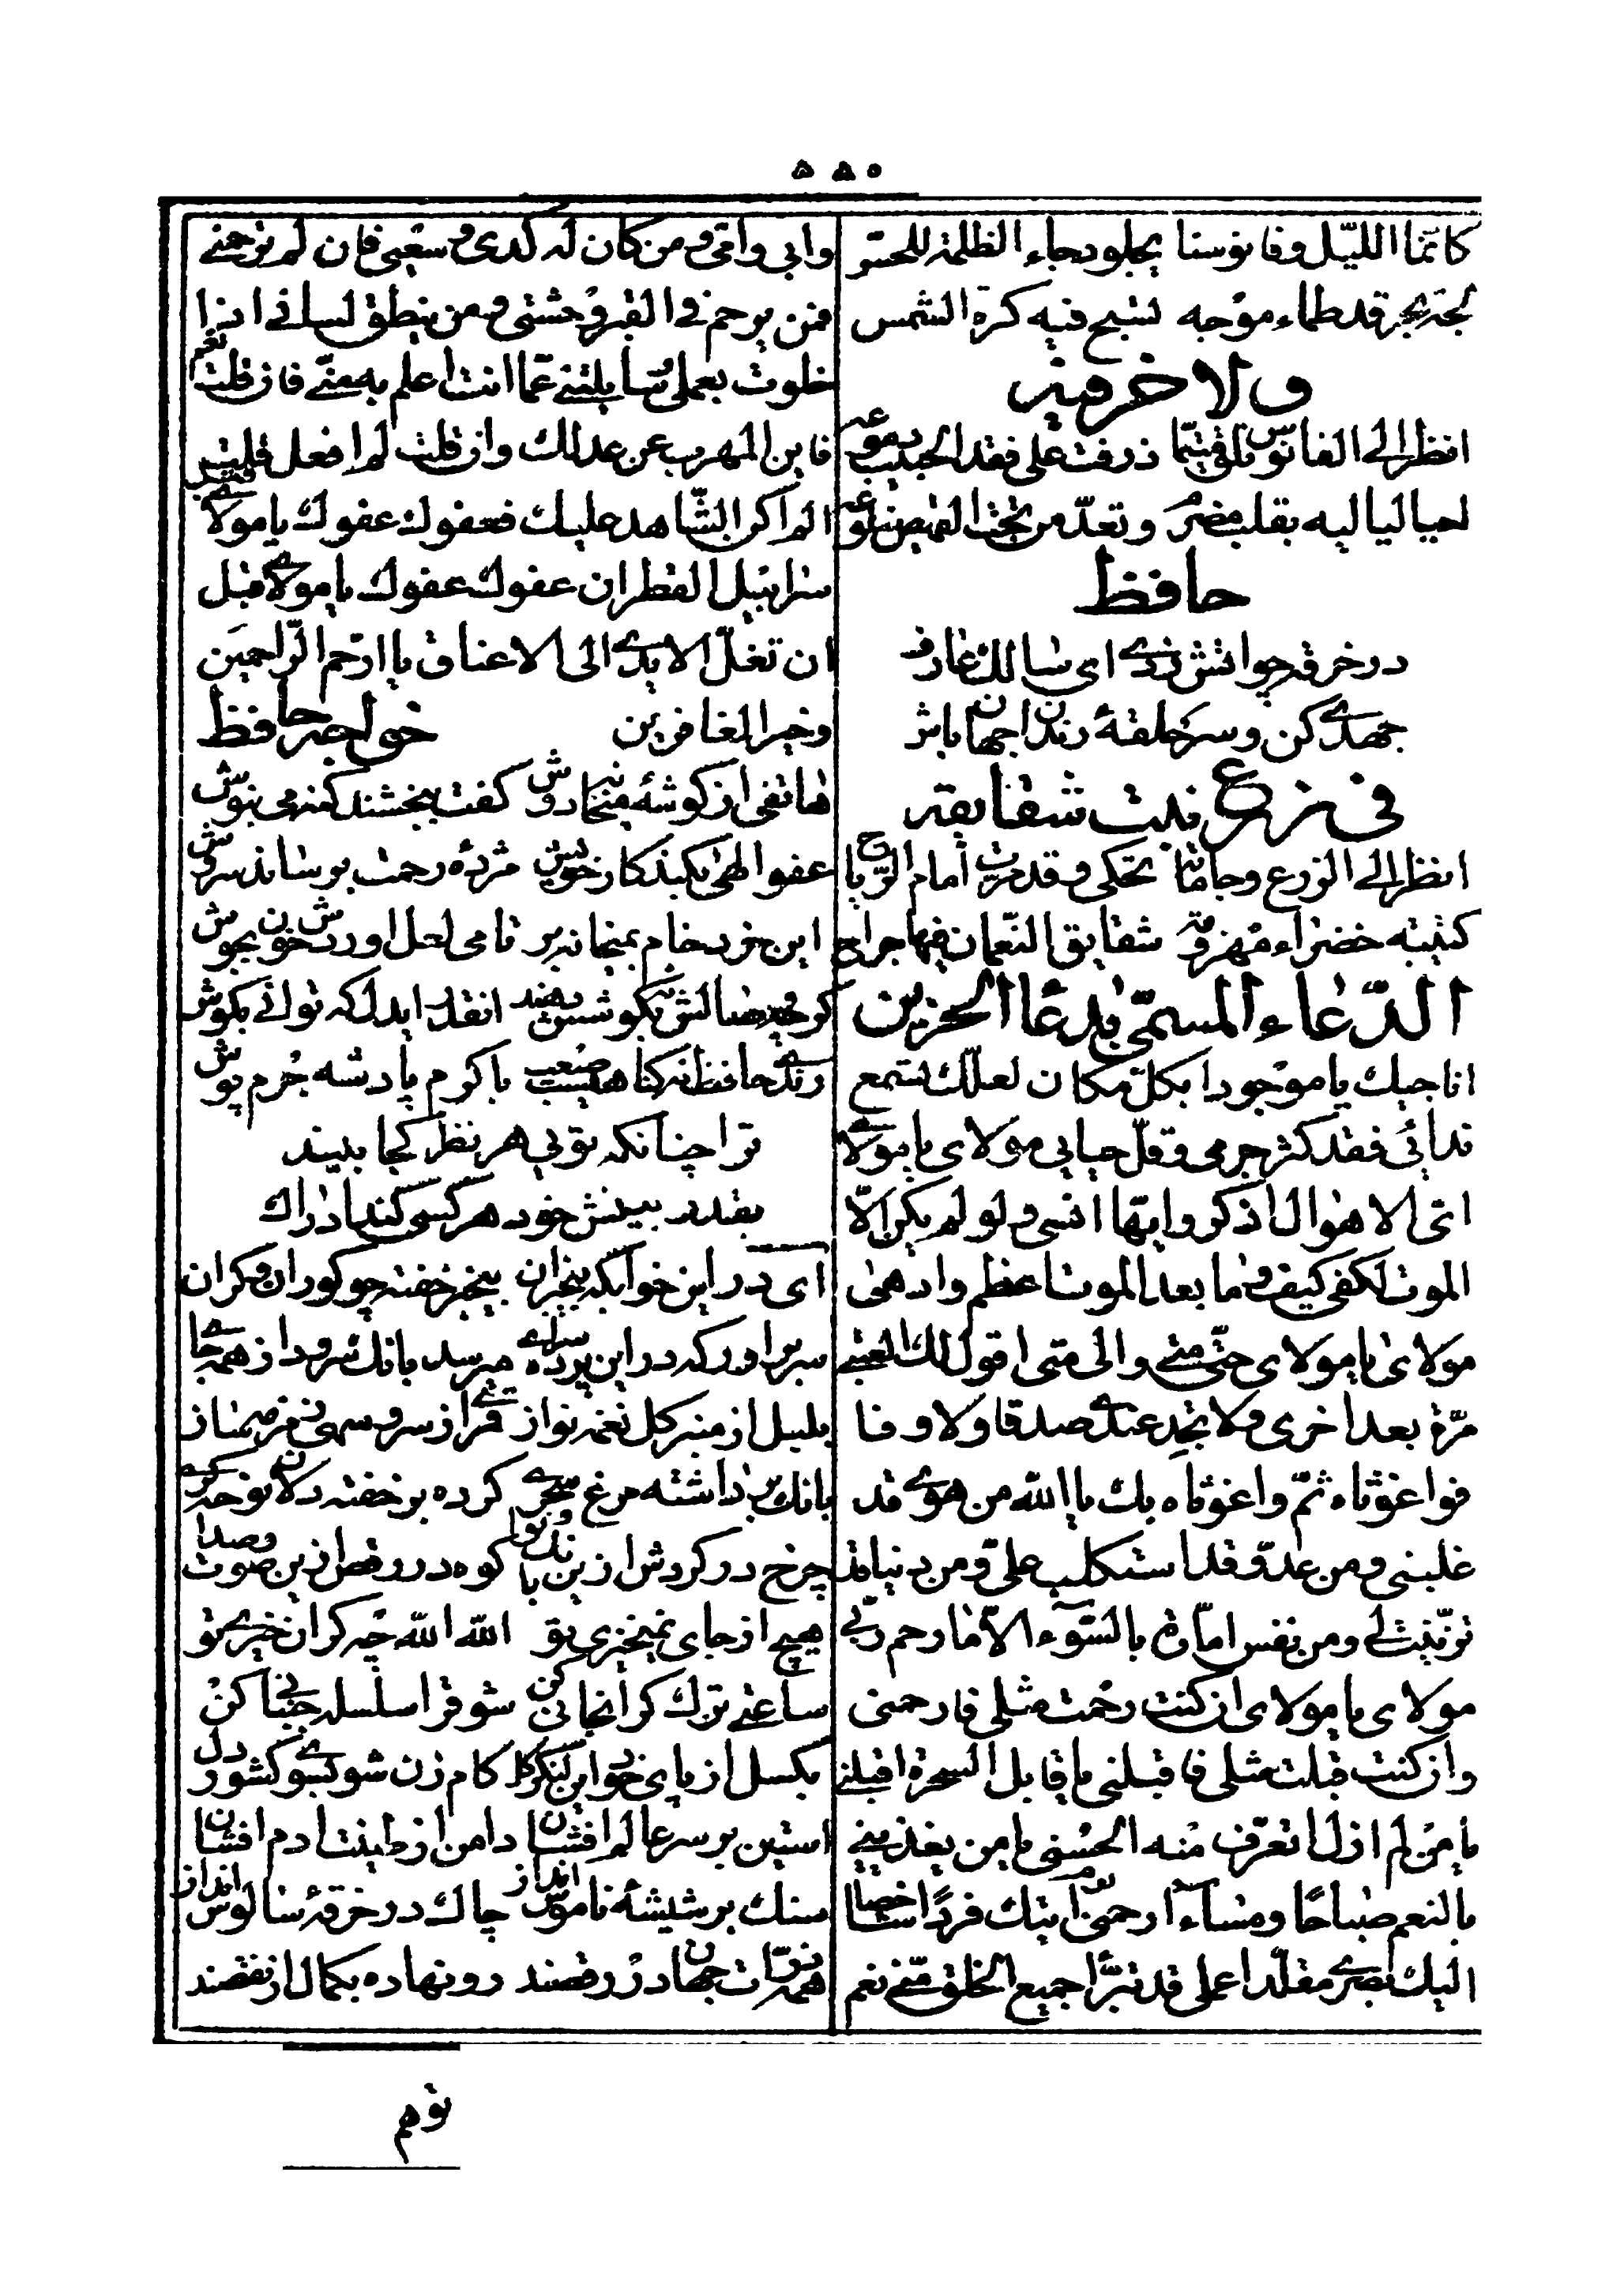 ۵۵۰
كانما الليل وفانوسنا يجلو دجاء الظلمة للحس
لجة بحر قد طماء موجه تسبح فيه كرة الشمس
ولاخر فيه
انظر الى الفانوس تلق متيّما ذرفت على فقد الحبيب دموعه
لحياليا ليه بقلب مضرم وتعدّ من تحت القميص ضلوعه
حافظ
در خرقه چو اتش زدی ای سالك عارف
جهدی کن و سر حلقهٔ رندان جهان باش
فی زرع نبت شقایقه
انظر الى الزرع وجاماته تحكی وقد مرت أمام الرياح
كتيبة خضراء مهزومة شقایق النّعمان فیها جراح
الدّعاء المسمّی بدعاا لحزین
اناجیك یا موجودا بكلّ مكان لعلّك تسمع
ندائی فقد كثر جرمی و قلّ حیایی مولای یا مولای
اتی الاهوال اذكر وایّها انسی و لو لم یكن الّا
الموت لكفی كیف و ما بعد الموت اعظم و ادهی
مولای یا مولای حتّی متی و الی متی اقول لك العتبی
مرّة بعد اخری و لا تجد عندی صدقا ولا وفا
فواغوثاه ثمّ واغوثاه بك یا اللّه من هوی قد
غلبنی و من عدوّ قد استكلب علیّ و من دنیا قد
تزیّنت لی و من نفس امّارة بالسّوء الّا ما رحم ربّی
مولای یا مولای ان كنت رحمت مثلی فارحمنی
و ان كنت قبلت مثلی فاقبلنی یا قابل السحرة اقبلنی
یا من لم ازل اتعرّف منه الحسنی یا من یغذینی
بالنعم صباحًا و مساءً ارحمنی یوم آتیك فردًا شاخصا
الیك بصری مقلّدا عملی قد تبرّأ جمیع الخلق منّی نعم
وابی وامّی و من كان له كدی و سعیی فان لم ترحمنی
فمن یرحمنی فی القبر وحشتی و من ینطق لسانی اذا
خلوت بعملی و سایلتنی عمّا انت اعلم به منّی فان قلت نعم
فاین المهرب عن عدلك و ان قلت لم افعل قلت
الم اكن الشّاهد علیك فعفوك عفوك یا مولای قبل
سرابیل القطران عفوك عفوك یا مولای قبل
ان تغلّ الایدی الی الاعناق یا ارحم الرّاحمین
و خیر الغافرین خواجه حافظ
هاتفی از كوشهٔ میخانه دوش كفت ببخشند كنه می بنوش
عفو الهی بكند كار خویش مژدهٔ رحمت برساند سروش
این خرد خام بمیخانه بر تا می لعل اوردش خون بجوش
كرچه وصالش نه بكوشش دهند انقدر ایدل كه توانی بكوش
رندی حافظ نه كناهیست صعب با كرم پادشه جرم پوش
ترا چنانكه تویی هر نظر كجا بیند
بقدر بینش خود هر كسی كند ادراك
ای در این خوابكه بیخبران بیخبر خفته چو كوران و كران
سر براور كه در این پرده سرای میرسد بانك سرود از همه جا
بلبل از منبر كل نغمه نواز قمری از سرو سهی زمزمه ساز
بانك برداشته مرغ سحری كرده بر خفته دلان نوحه كری
چرخ در كردش ازین بانك و نوا كوه در رقص ازین صوت و صدا
هیچ از جای نمیخیزی تو الله الله چه كران خیزی تو
ساعتی ترك كرانجانی كن شوق را سلسله جنبانی كن
بكسل از پای خود این لنكر كل كام زن شو بسوی كشور دل
استین بر سر عالم افشان دامن از طینت ادم افشان
سنك بر شیشهٔ ناموس انداز چاك در خرقهٔ سالوس انداز
همه ذرّات جهان در رقصند رو نهاده بكمال از نقصند
توهم